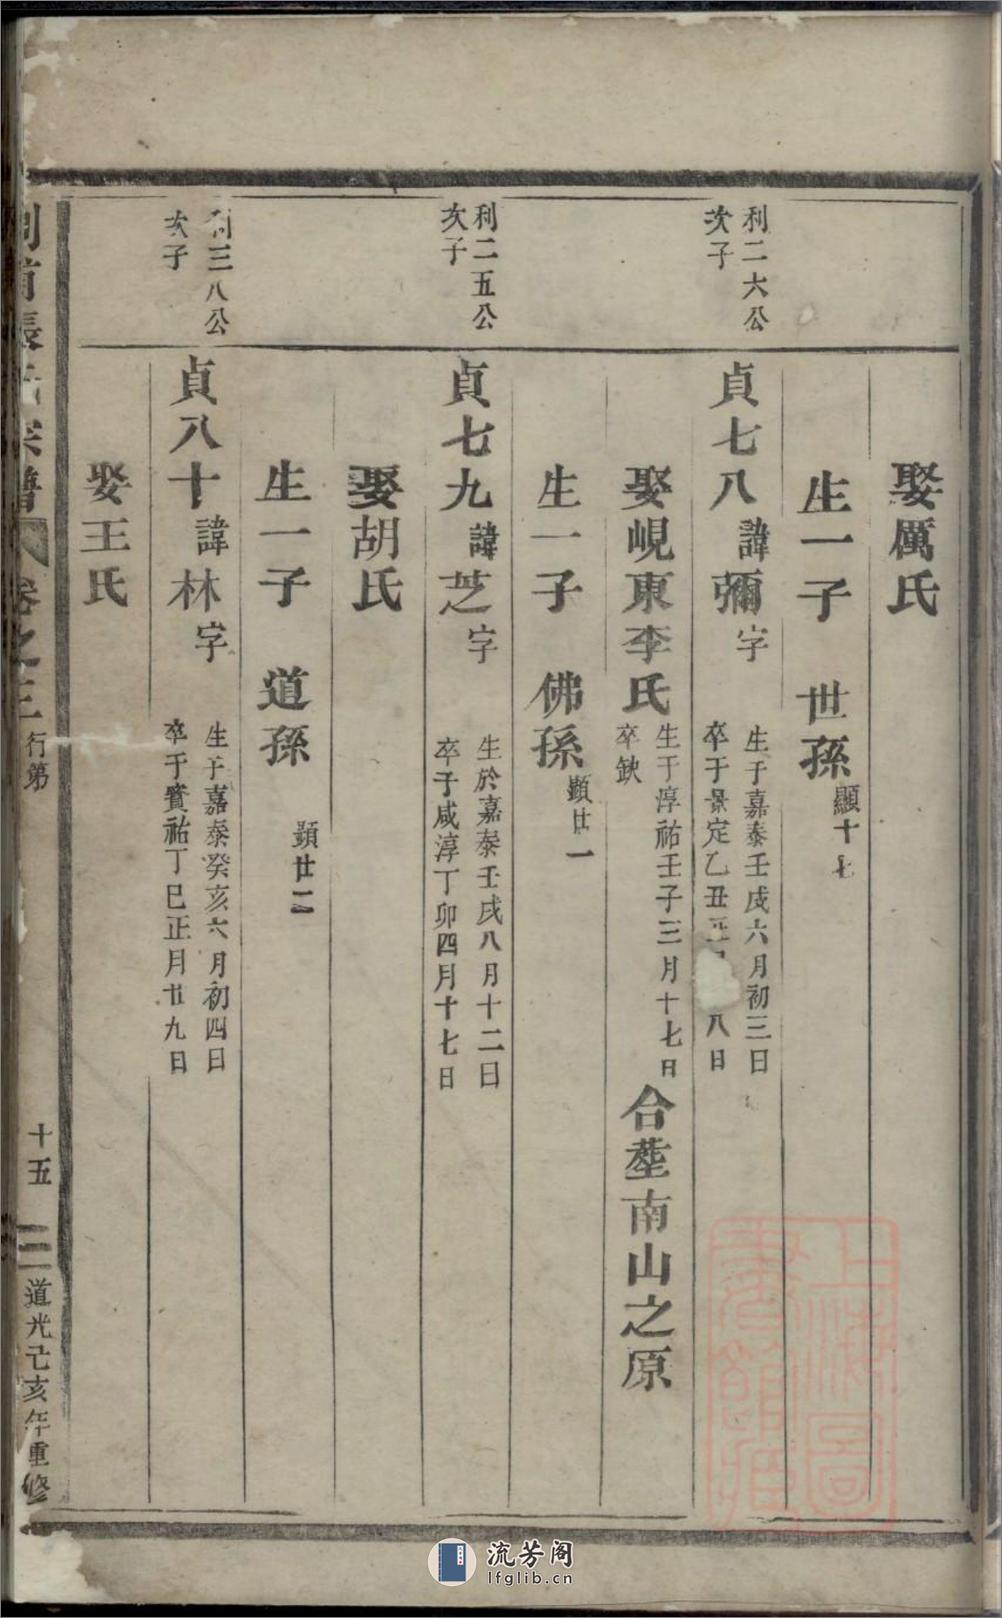 娶厲氏
生一子　世孫 顯十七
利二六公
次子
貞七八 諱彌字
生于嘉泰壬戌六月初三日
卒于景定乙丑正 八日
娶峴東李氏
生于淳祐壬子三月十七日
卒缺
合塟南山之原
生一子　佛孫 顯廿一
利二五公
次子
貞七九 諱芝字
生於嘉泰壬戌八月十二日
卒于咸淳丁卯四月十七日
娶胡氏
生一子　道孫 顯廿二
利三八公
次子
貞八十 諱林字
生于嘉泰癸亥六月初四日
卒于寳祐丁巳正月廿九日
娶王氏
宗譜 卷之三 行第
十五
道光己亥年重修
上海圖書館藏
流芳阁
lfglib.cn